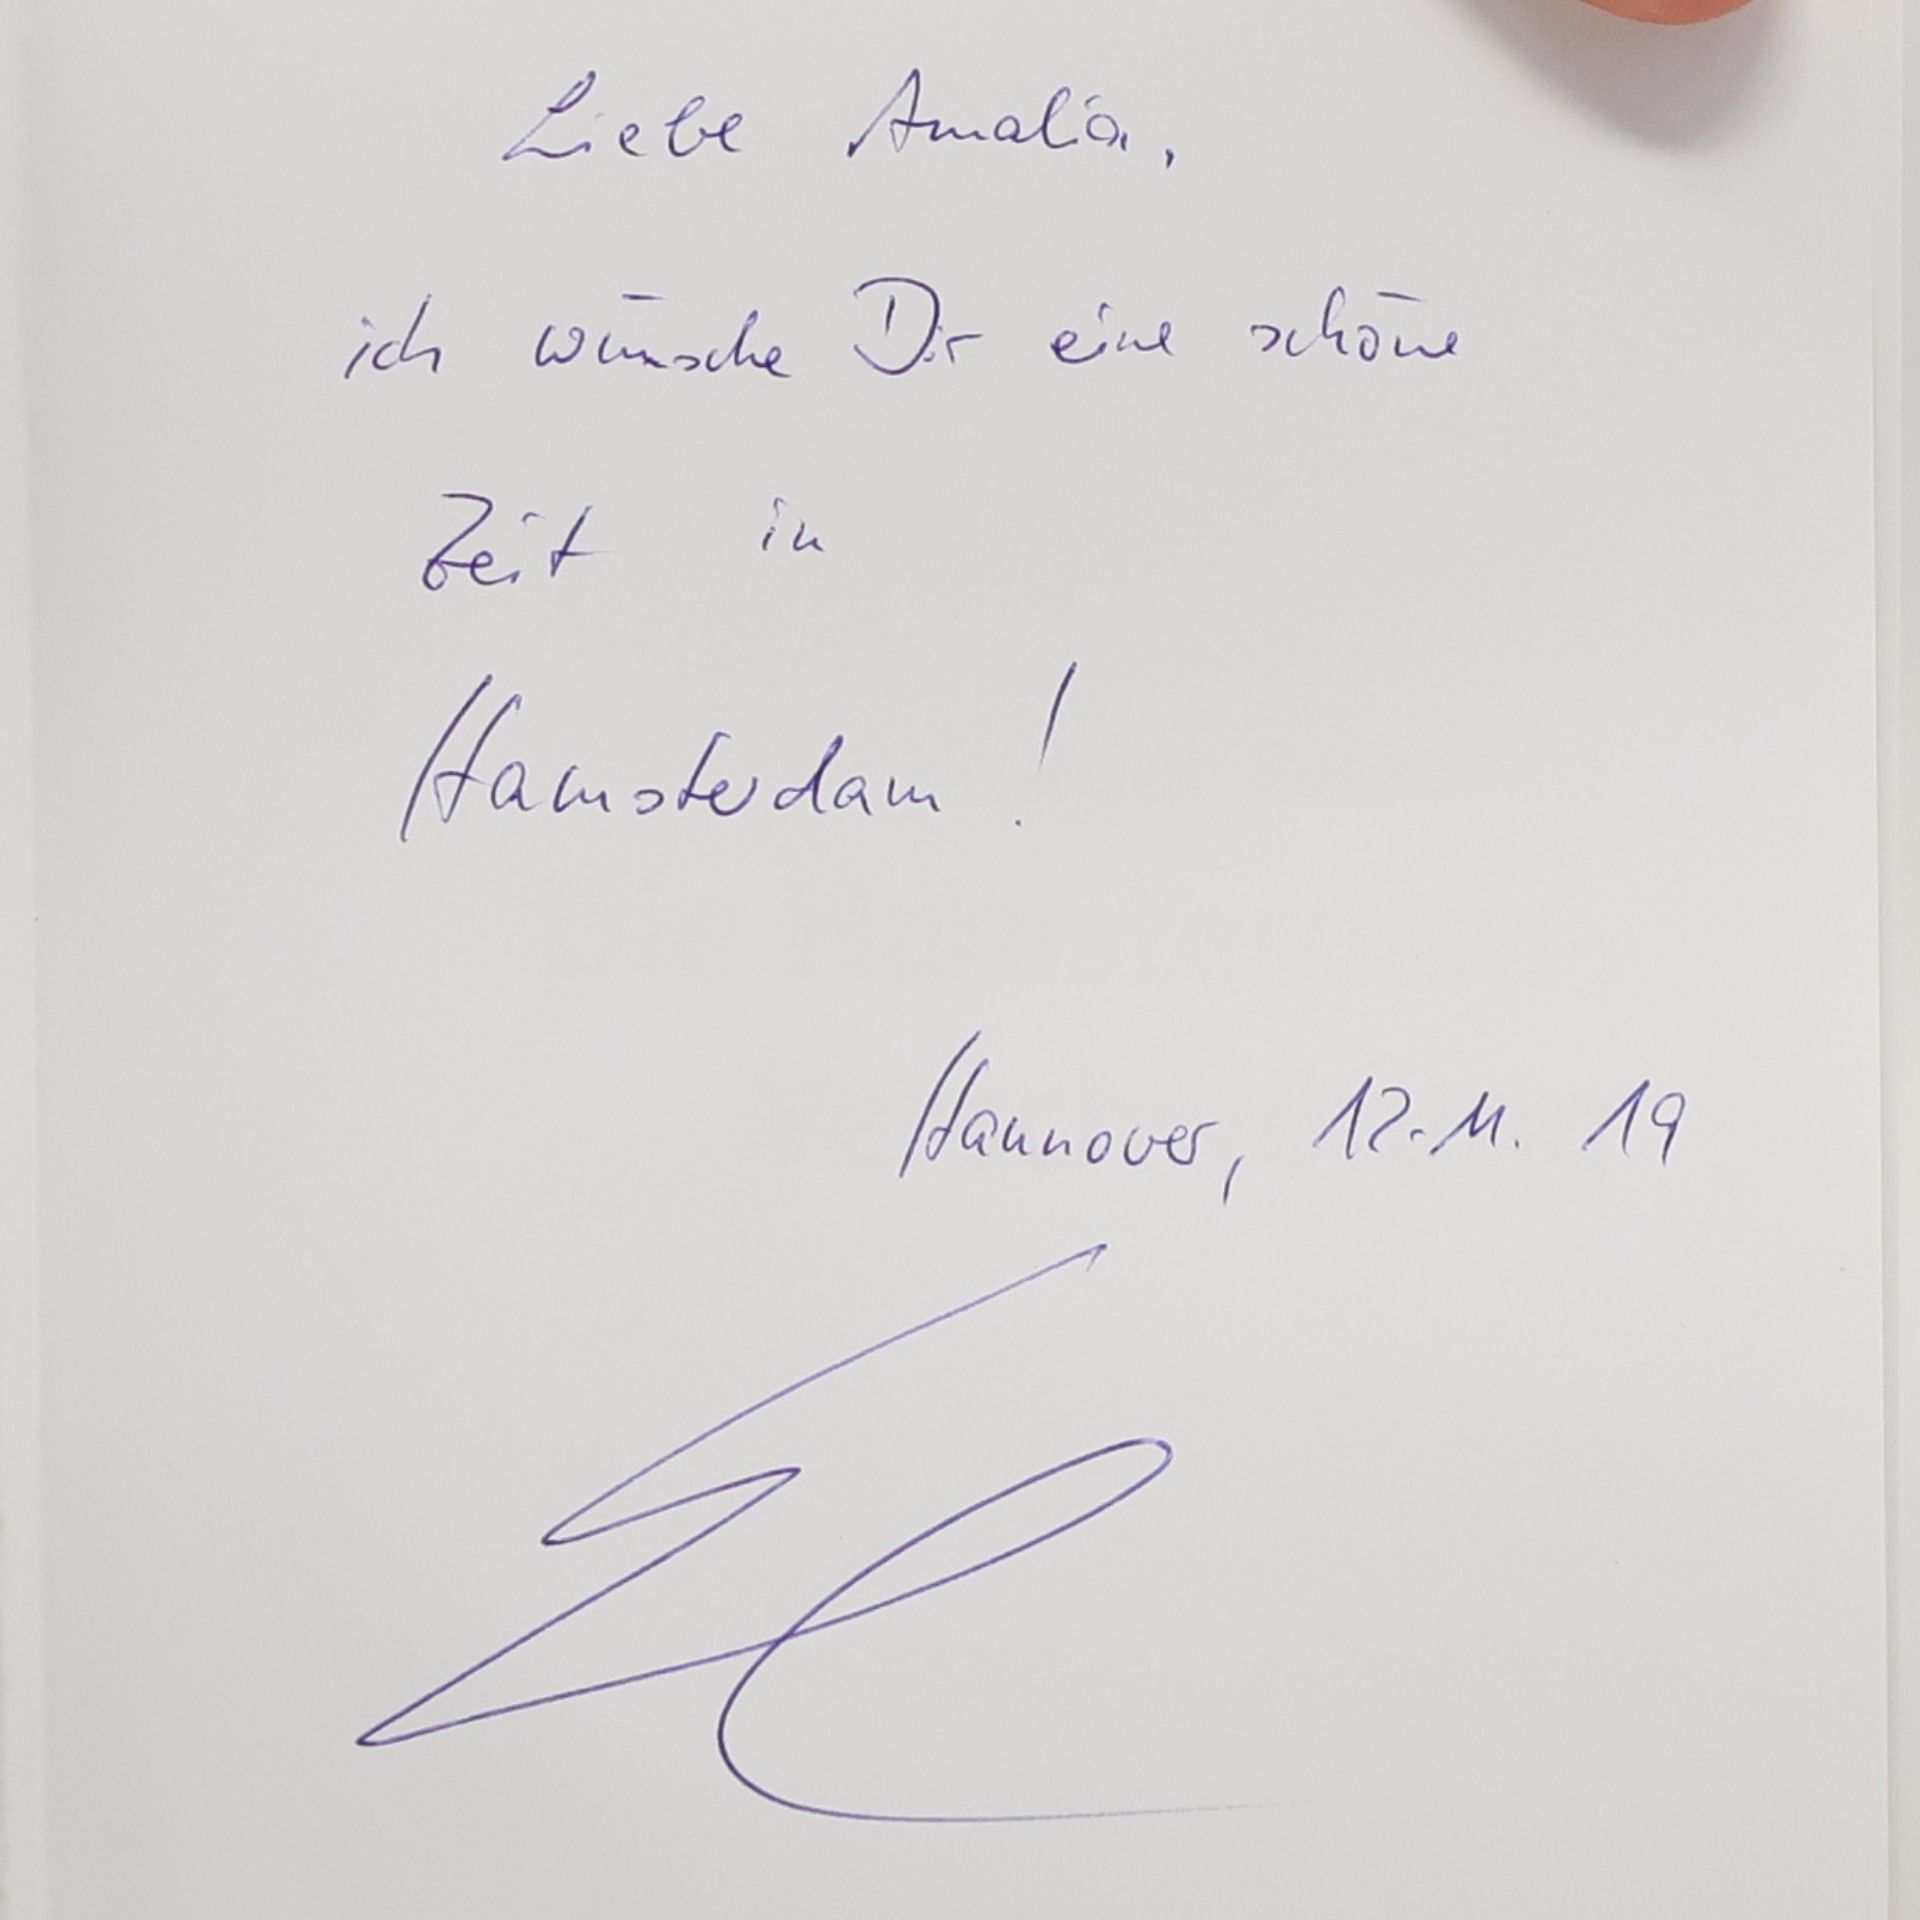 Liebe Amalia,
ich wünsche Dir eine schöne
Zeit in
Hamsterdam!
Hannover, 12.11.19